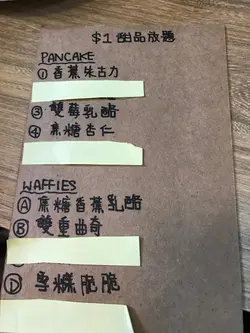 $1 甜品放題
PANCAKE
① 香蕉朱古力
③ 雙莓乳酪
④ 焦糖杏仁
WAFFIES
Ⓐ 焦糖香蕉乳酪
Ⓑ 雙重曲奇
Ⓓ 雪糕脆脆